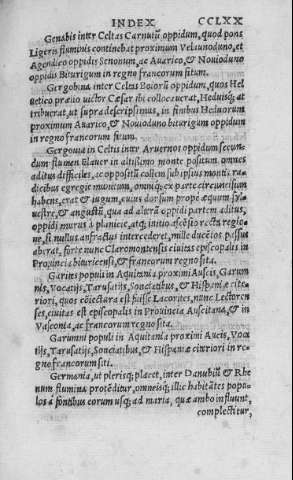 INDEX CCLXX
Genabis inter Celtas Carnutū oppidum, quod pons
Ligeris fluminis continebat proximum Velaunoduno, et
Agendico oppidis Senonum, ac Auarico, & Nouioduno
oppidis Biturigum in regno francorum situm.
Gergobina inter Celtas Boiorū oppidum, quos Hel
uetico prælio uictor Cæsar ibi collocauerat, Heduisq; at
tribuerat, ut supra descripsimus, in finibus Heduorum
proximum Auarico, & Nouioduno biturigum oppidum
in regno francorum situm.
Gergouia in Celtis inter Aruernos oppidum secun-
dum flumen Elauer in altissimo monte positum omneis
aditus difficiles, ac oppositū collem sub ipsius montis ra
dicibus egregie munitum, omniq; ex parte circuncisum
habens, erat & iugum, cuius dorsum prope æquum syl
uestre, & angustū, qua ad alterā oppidi partem aditus,
oppidi murus à planicie, atq; initio ascēsio recta regio=
ne, si nullus anfractus intercederet, mille ducētos passus
aberat, forte nunc Claromontensis ciuitas episcopalis in
Prouincia bituricensi, & francorum regno sita.
Garites populi in Aquitania proximi Auscis, Garum
nis, Vocatijs, Tarusatijs, Sonciatibus, & Hispaniæ cite
riori, quos cōiectura est fuisse Lacorates, nunc Lectoren
ses, ciuitas est episcopalis in Prouincia Auscitana, & in
Vasconia, ac francorum regno sita.
Garumni populi in Aquitania proximi Aucis, Voca
tijs, Tarusatijs, Sonciatibus, & Hispaniæ citeriori in re
gno francorum siti.
Germania, ut plerisq; placet, inter Danubiū & Rhe
num flumina protēditur, omneisq; illic habitātes popu=
los à fontibus eorum usq; ad maria, quæ ambo influunt,
complectitur,